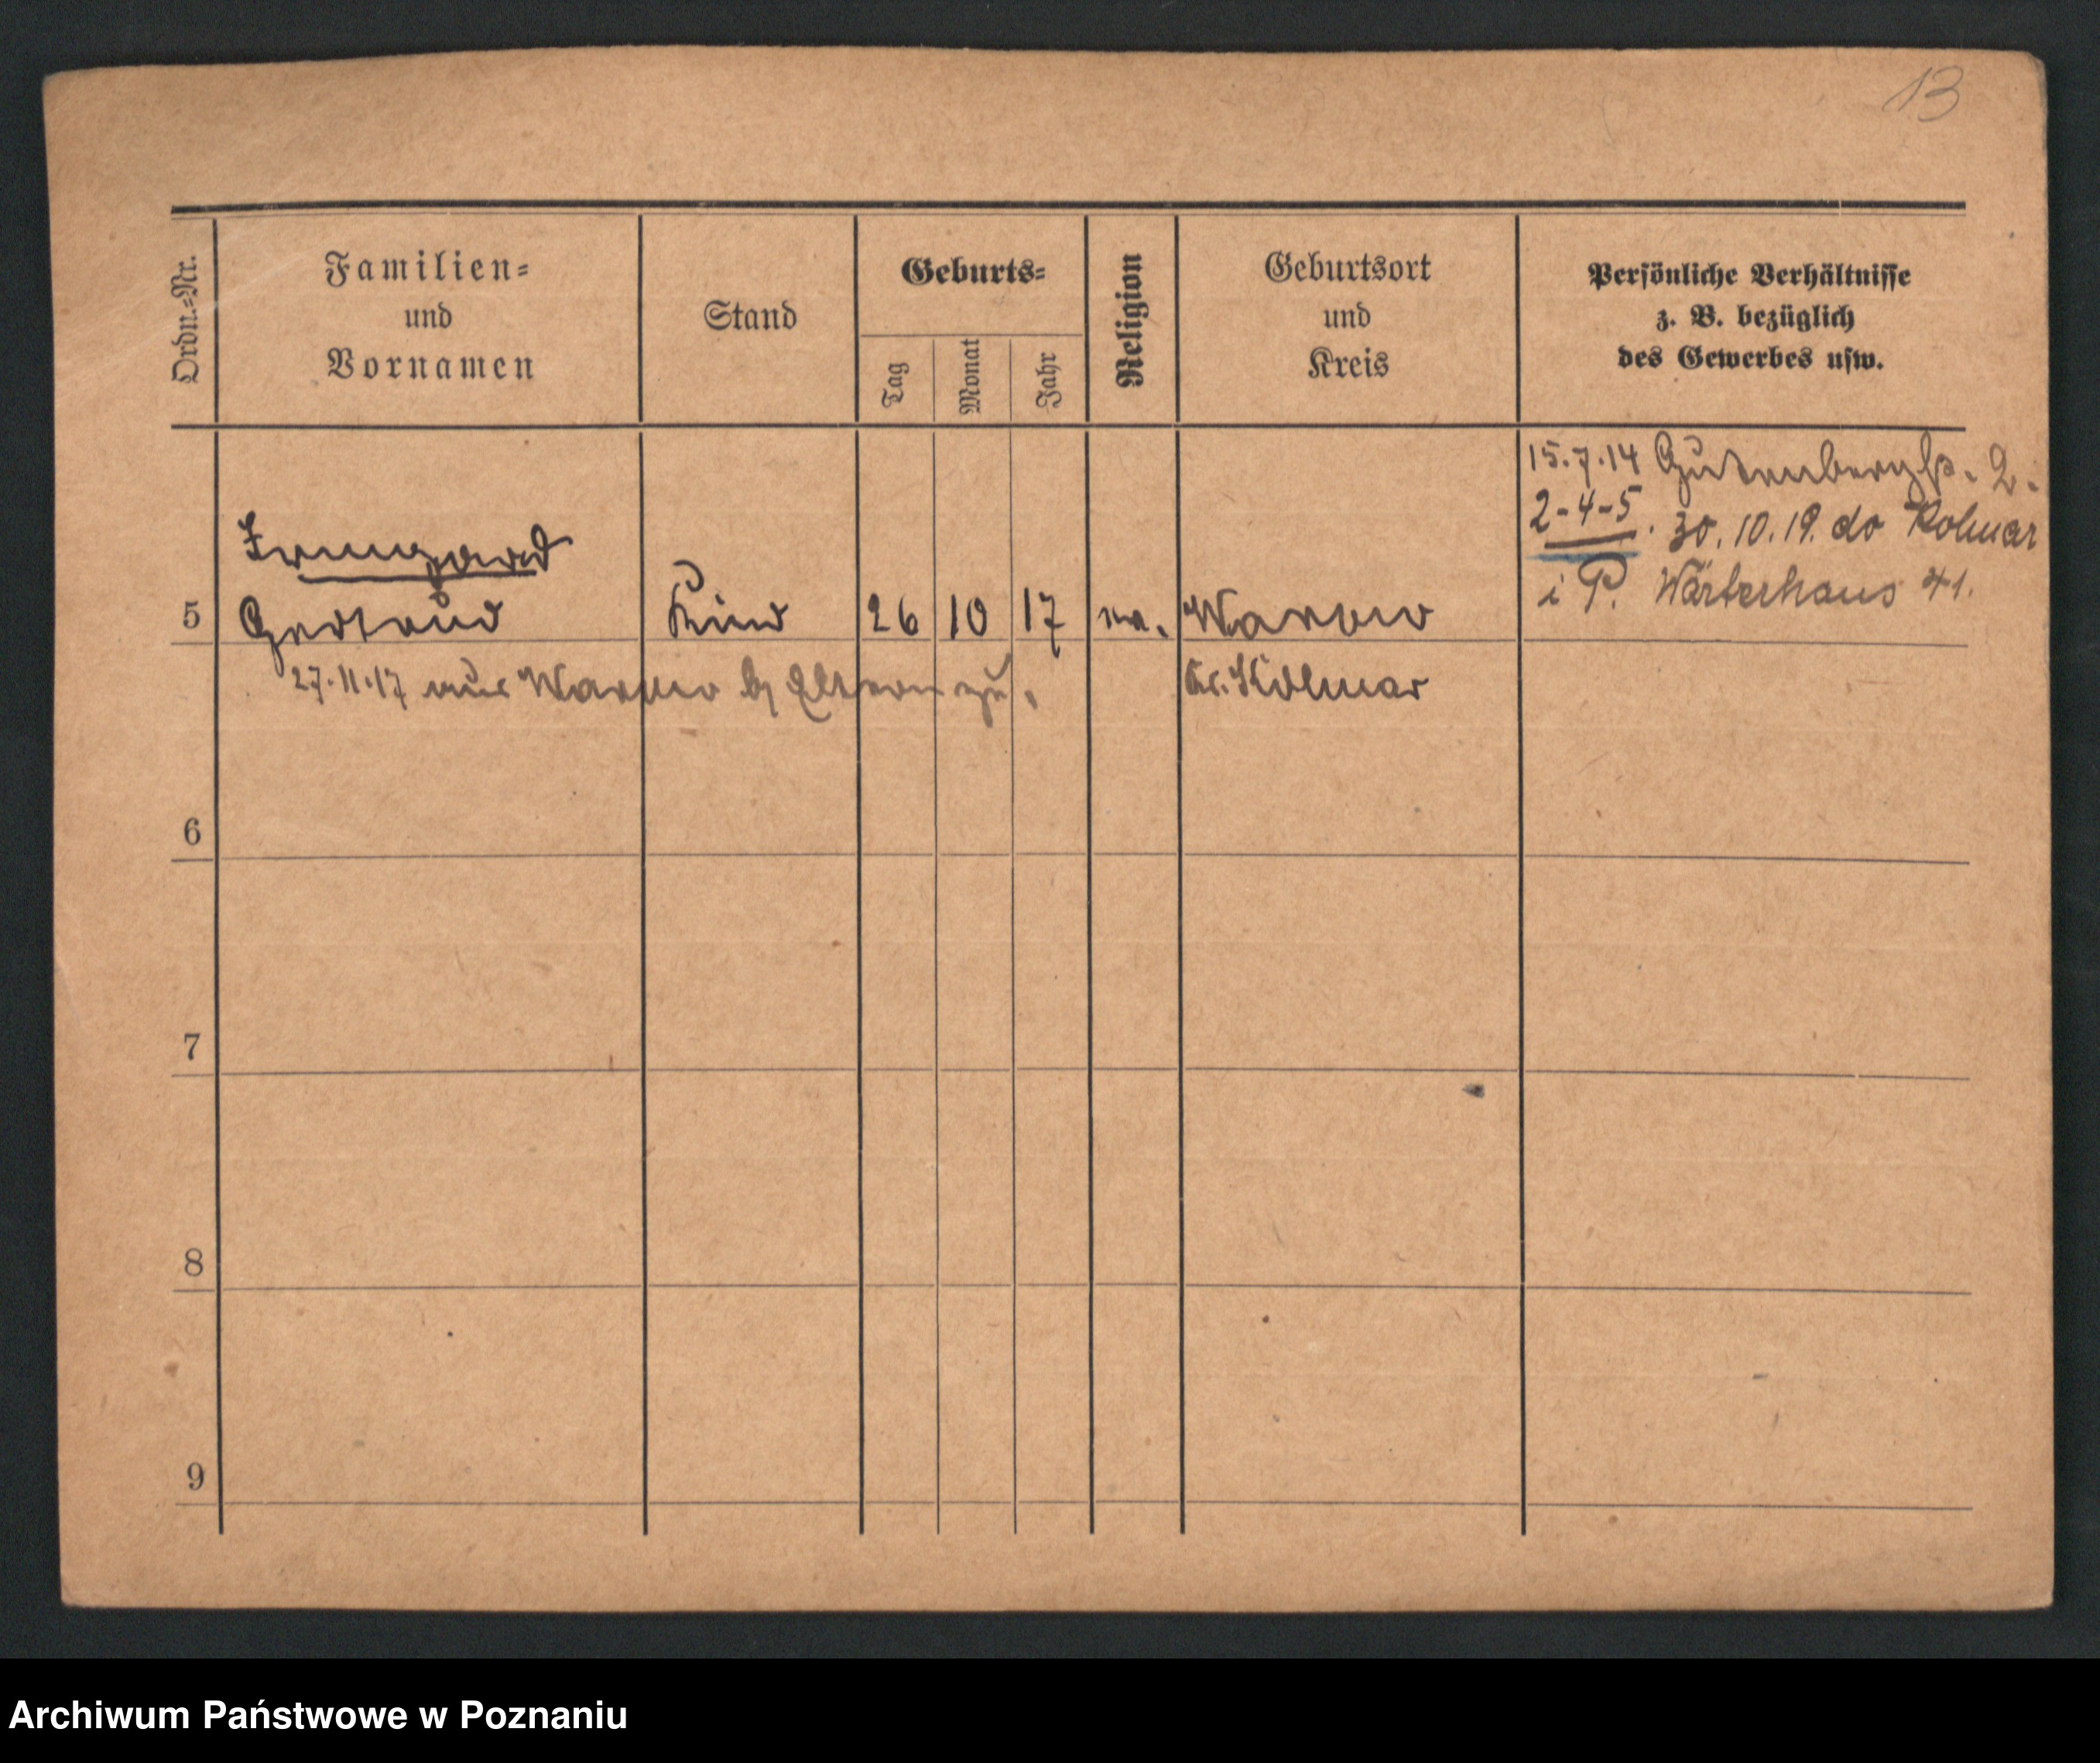 13
Ordn.-Nr.
Familien-
und
Vornamen
Stand
Geburts-
Tag
Monat
Jahr
Religion
Geburtsort
und
Kreis
Persönliche Verhältnisse
z. B. bezüglich
des Gewerbes usw.
15.7.14 Gutenbergstr. 2.
2-4-5. 30.10.19. do Kolmar
i P. Wärterhaus 41.
Irmgard
5 Gertrud Kind 26 10 17 ev.
27.11.17 aus z. Eltern zu.
Kr. Kolmar
6
7
8
9
Archiwum Państwowe w Poznaniu